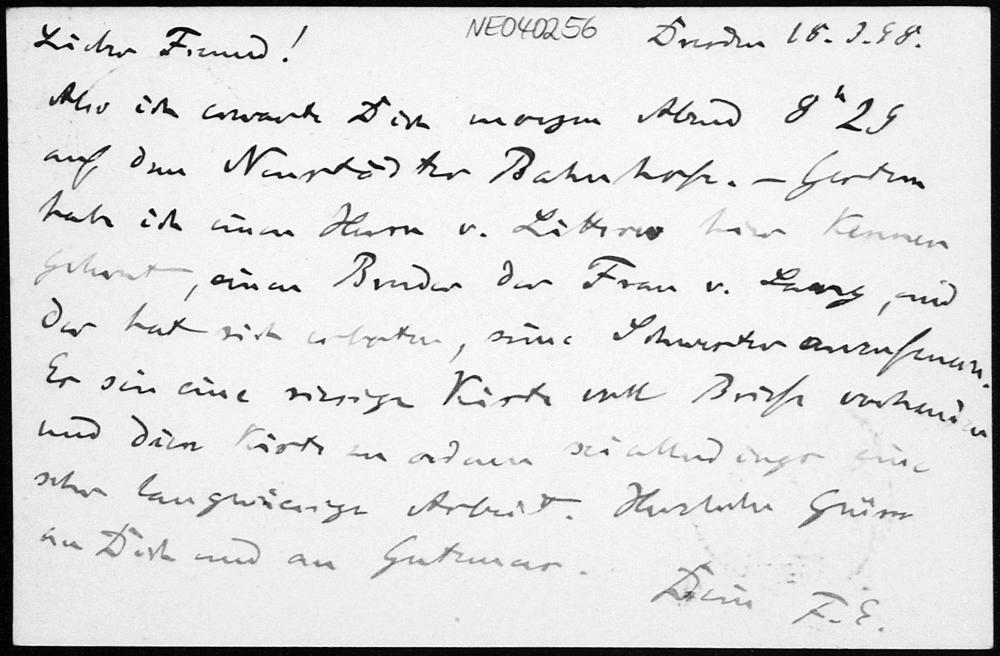 NE040256
Dresden 18. 3. 98.
Lieber Freund!
Also ich erwarte Dich morgen Abend 8 h 29
auf dem Neustädter Bahnhofe. – Gestern
habe ich einen Herrn v. Littrow hier kennen
gelernt, einen Bruder der Frau v. Lang, und
der hat sich erboten, seine Schwester
Es sei eine riesige Kiste voll Briefe vorhanden
und diese Kiste zu ordnen sei allerdings eine
sehr langwierige Arbeit. Herzliche Grüsse
an Dich und an Gutmar.
Dein F. E.